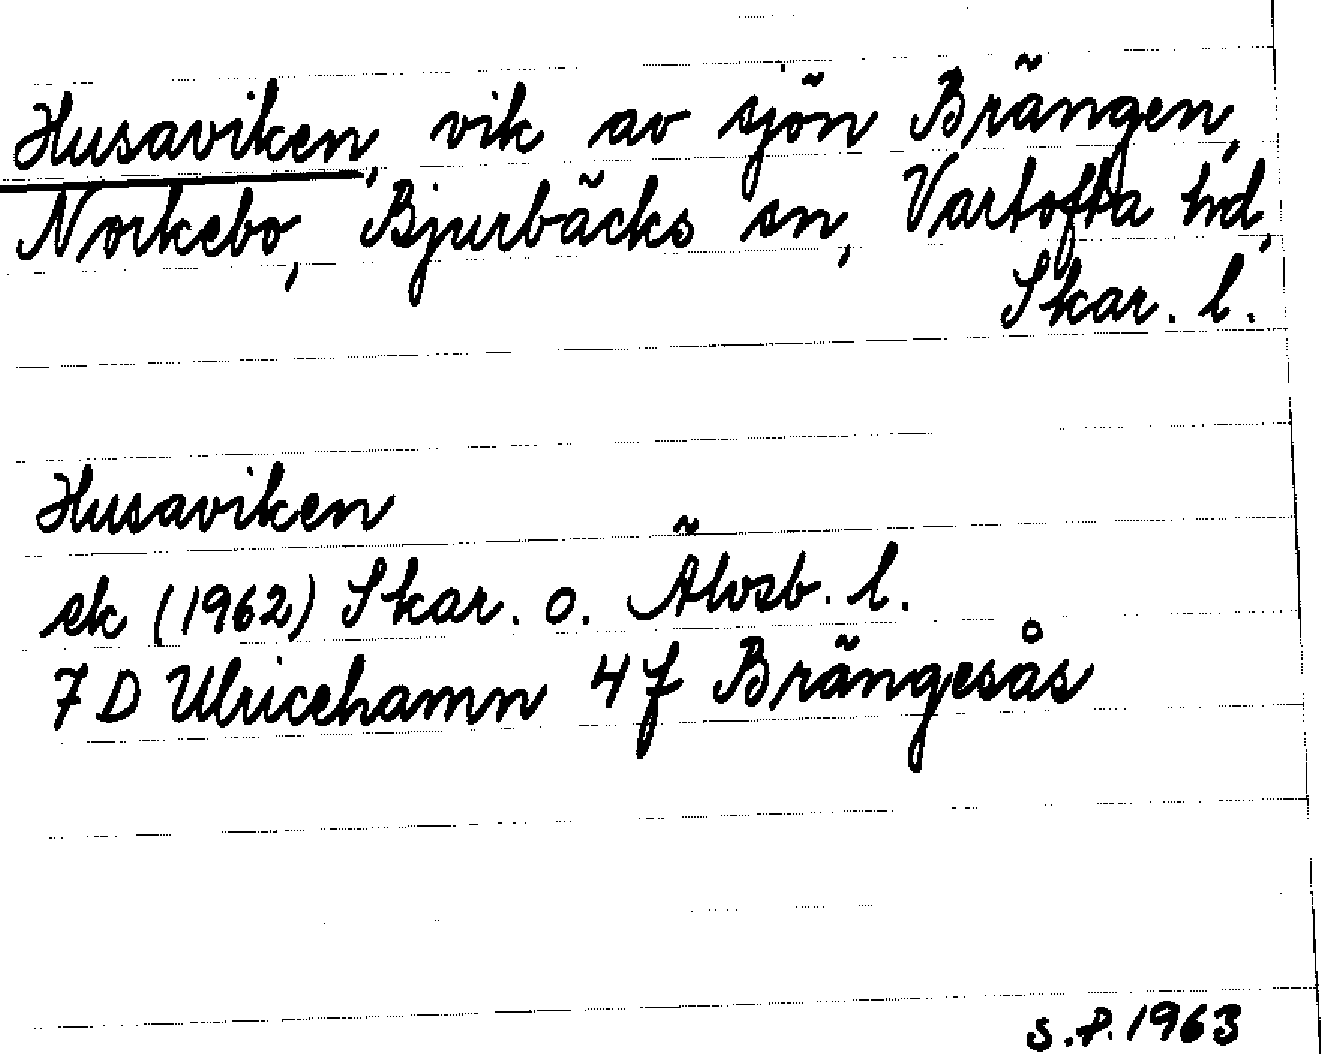 Husaviken, vik av sjön Brängen,
Norkebo, Bjurbäcks sn, Vartofta hd,
Skar. l.
Husaviken
ek (1962) Skar. o. Älvsb. l.
7 D Ulricehamn 4 f Brängesås
S.P. 1963